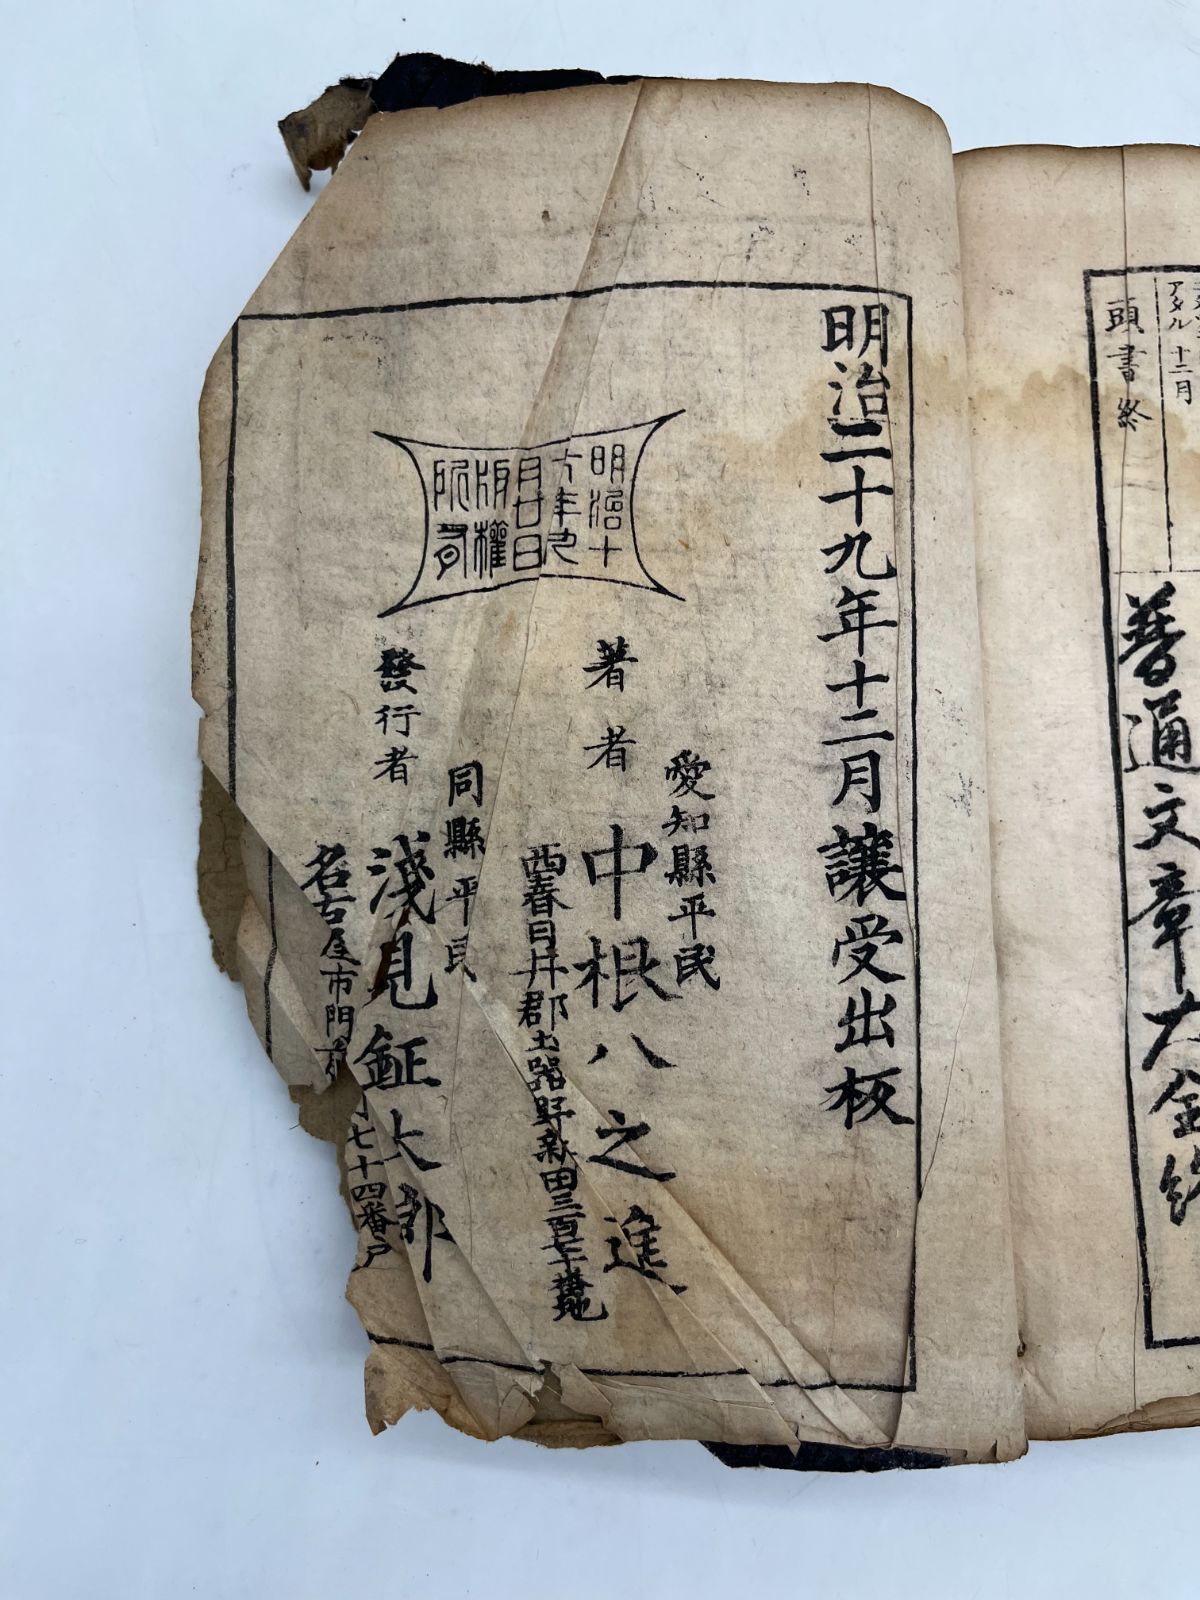 アタル 十二月
頭書終
普通文章大全終
明治二十九年十二月讓受出板
明治十
九年九
月廿日
版權
所有
愛知縣平民
著者 中根八之進
西春日井郡土器野新田三百七十番地
同縣平民
發行者 淺見鉦太郎
名古屋市門前町七十四番戸